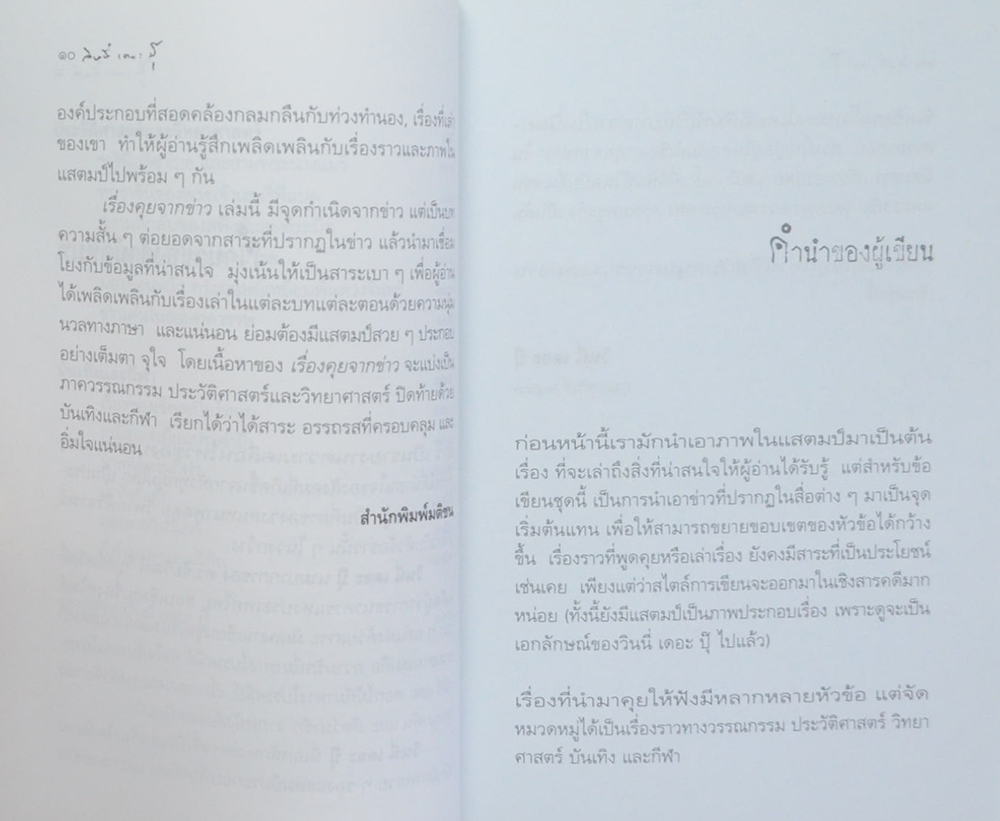 ๑๐
องค์ประกอบที่สอดคล้องกลมกลืนกับท่วงทำนอง, เรื่องที่เล่า
ของเขา ทำให้ผู้อ่านรู้สึกเพลิดเพลินกับเรื่องราวและภาพใน
แสตมป์ไปพร้อม ๆ กัน
เรื่องคุยจากข่าว เล่มนี้ มีจุดกำเนิดจากข่าว แต่เป็นบท
ความสั้น ๆ ต่อยอดจากสาระที่ปรากฏในข่าว แล้วนำมาเชื่อม
โยงกับข้อมูลที่น่าสนใจ มุ่งเน้นให้เป็นสาระเบา ๆ เพื่อผู้อ่าน
ได้เพลิดเพลินกับเรื่องเล่าในแต่ละบทแต่ละตอนด้วยความนุ่ม
นวลทางภาษา และแน่นอน ย่อมต้องมีแสตมป์สวย ๆ ประกอบ
อย่างเต็มตา จุใจ โดยเนื้อหาของ เรื่องคุยจากข่าว จะแบ่งเป็น
ภาควรรณกรรม ประวัติศาสตร์และวิทยาศาสตร์ ปิดท้ายด้วย
บันเทิงและกีฬา เรียกได้ว่าได้สาระ อรรถรสที่ครอบคลุม และ
อิ่มใจแน่นอน
สำนักพิมพ์มติชน
คำนำของผู้เขียน
ก่อนหน้านี้เรามักนำเอาภาพในแสตมป์มาเป็นต้น
เรื่อง ที่จะเล่าถึงสิ่งที่น่าสนใจให้ผู้อ่านได้รับรู้ แต่สำหรับข้อ
เขียนชุดนี้ เป็นการนำเอาข่าวที่ปรากฏในสื่อต่าง ๆ มาเป็นจุด
เริ่มต้นแทน เพื่อให้สามารถขยายขอบเขตของหัวข้อได้กว้าง
ขึ้น เรื่องราวที่พูดคุยหรือเล่าเรื่อง ยังคงมีสาระที่เป็นประโยชน์
เช่นเคย เพียงแต่ว่าสไตล์การเขียนจะออกมาในเชิงสารคดีมาก
หน่อย (ทั้งนี้ยังมีแสตมป์เป็นภาพประกอบเรื่อง เพราะดูจะเป็น
เอกลักษณ์ของวินนี่ เดอะ ปุ๊ ไปแล้ว)
เรื่องที่นำมาคุยให้ฟังมีหลากหลายหัวข้อ แต่จัด
หมวดหมู่ได้เป็นเรื่องราวทางวรรณกรรม ประวัติศาสตร์ วิทยา
ศาสตร์ บันเทิง และกีฬา